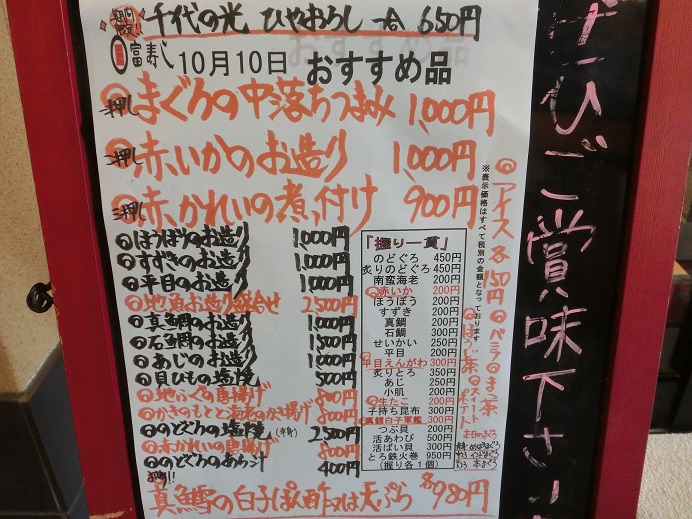 千代の光 ひやおろし 一合 650円
富寿し 10月10日 おすすめ品
一押し まぐろの中落ちつまみ 1,000円
二押し 赤いかのお造り 1,000円
三押し 赤かれいの煮付け 900円
ほうぼうのお造り 1,000円
すずきのお造り 1,000円
平目のお造り 1,000円
地魚お造り盛合せ 2500円
真鯛のお造り 1,000円
石鯛のお造り
あじのお造り
貝ひもの塩焼 500円
地ふぐの唐揚げ 800円
かきのもとと海老のかき揚げ
のどぐろの塩焼(半身) 2500円
赤かれいの唐揚げ 800円
のどぐろのあら汁 400円
真鱈の白子ぽん酢又は天ぷら 各980円
「握り一貫」
のどぐろ 450円
炙りのどぐろ 450円
南蛮海老 200円
赤いか 200円
ほうぼう 200円
すずき 200円
真鯛 200円
石鯛 300円
せいかい 250円
平目 200円
平目えんがわ 300円
炙りとろ 350円
あじ 250円
小肌 200円
生たこ 200円
子持ち昆布 300円
真鱈白子軍艦 300円
つぶ貝 200円
活あわび 500円
活ばい貝 300円
とろ鉄火巻 950円
(握り各1個)
※表示価格はすべて税別の金額となっております
アイス 各150円
バニラ
まっ茶
ほうじ茶
スイートポテト
本日のまぐろ
ぜひご賞味下さい